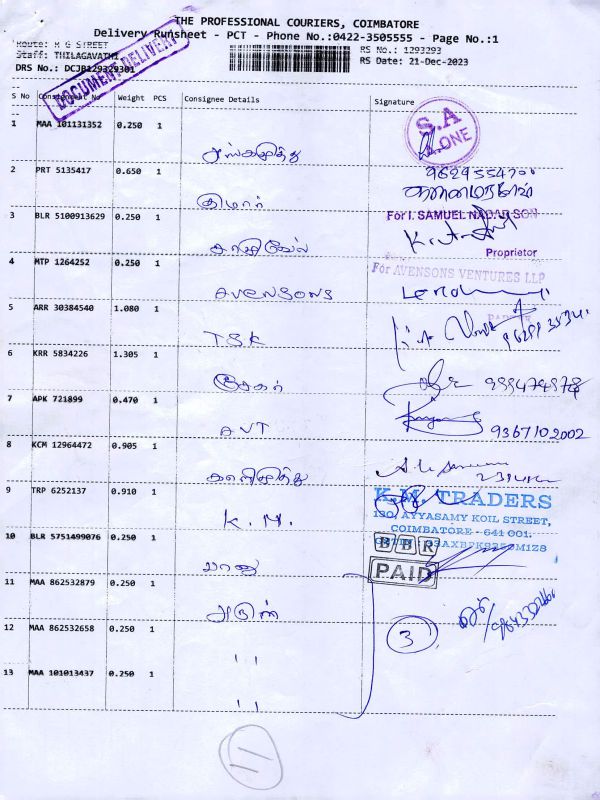 THE PROFESSIONAL COURIERS, COIMBATORE
Delivery Runsheet - PCT - Phone No.:0422-3505555 - Page No.:1
Route: M G STREET
RS No.: 1293293
Staff: THILAGAVATHI
RS Date: 21-Dec-2023
DRS No.: DCJB129329301
DOCUMENT DELIVERY
S No Consignment No Weight PCS Consignee Details Signature
1 MAA 101131352 0.250 1
S.A ZONE
2 PRT 5135417 0.650 1
குமார்
3 BLR 5100913629 0.250 1
For I. SAMUEL NADAR SON
Proprietor
4 MTP 1264252 0.250 1
AVENSONS
For AVENSONS VENTURES LLP
5 ARR 30384540 1.080 1
TSK
6 KRR 5834226 1.305 1
சேகர்
7 APK 721899 0.470 1
AVT
9367102002
8 KCM 12964472 0.905 1
காளிமுத்து
9 TRP 6252137 0.910 1
K.M.
K.M. TRADERS
130, AYYASAMY KOIL STREET,
COIMBATORE - 641 001.
10 BLR 5751499076 0.250 1
பானு
BBR
PAID
11 MAA 862532879 0.250 1
அருண்
12 MAA 862532658 0.250 1
"
3
13 MAA 101013437 0.250 1
"